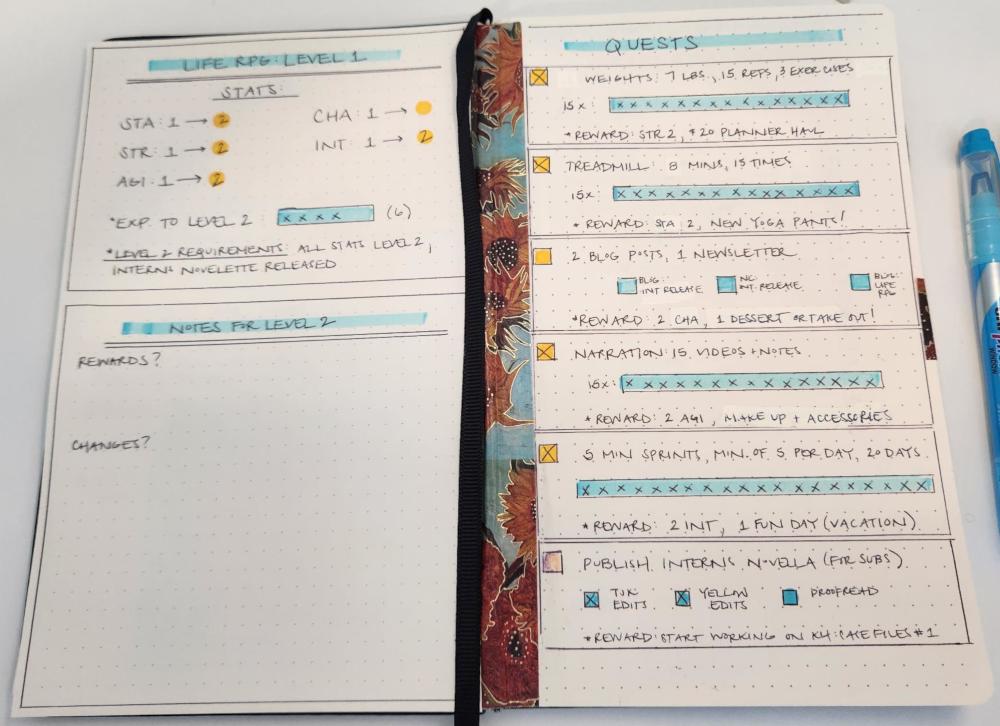 LIFE RPG: LEVEL 1
STATS:
STA: 1 → 2
CHA: 1 →
STR: 1 → 2
INT: 1 → 2
AGI: 1 → 2
*EXP. TO LEVEL 2: x x x x (6)
*LEVEL 2 REQUIREMENTS: ALL STATS LEVEL 2,
INTERNS NOVELETTE RELEASED
NOTES FOR LEVEL 2
REWARDS?
CHANGES?
QUESTS
WEIGHTS: 7 LBS, 15 REPS, 3 EXERCISES
15x: x x x x x x x x x x x x x x x
*REWARD: STR 2, $20 PLANNER HAUL
TREADMILL: 8 MINS, 15 TIMES
15x: x x x x x x x x x x x x x x x
*REWARD: STA 2, NEW YOGA PANTS!
2 BLOG POSTS, 1 NEWSLETTER
BLOG: INT RELEASE
NL: INT. RELEASE
BLOG: LIFE RPG
*REWARD: 2 CHA, 1 DESSERT OR TAKE OUT!
NARRATION: 15 VIDEOS + NOTES
15x: x x x x x x x x x x x x x x x
*REWARD: 2 AGI, MAKE UP + ACCESSORIES
5 MIN SPRINTS, MIN. OF 5 PER DAY, 20 DAYS
x x x x x x x x x x x x x x x x x x x x
*REWARD: 2 INT, 1 FUN DAY (VACATION)
PUBLISH INTERNS NOVELLA (FOR SUBS)
EDITS
YELLOW EDITS
PROOFREAD
*REWARD: START WORKING ON K4: CASE FILES #1